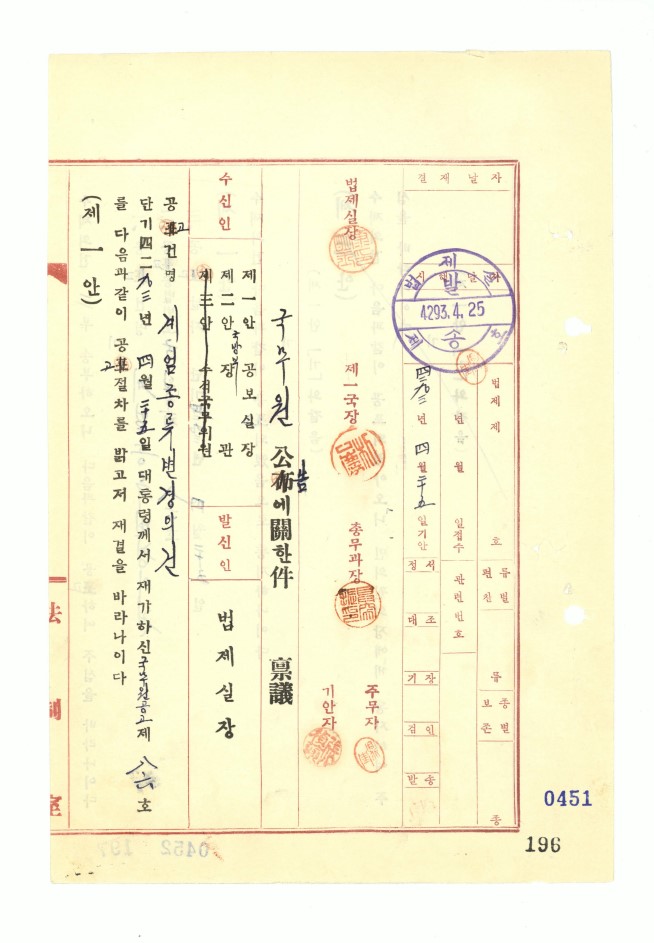 결재날자
시행날자
법제실
발송
4293.4.25
법제실
법제제 호
년 월 일접수
四二九三년 四월 二十五일기안
류별
편친
관련번호
류
종별
보존
종
정서
대조
기장
검인
발송
법제실장
제一국장
총무과장
주무자
기안자
국무원 公告에關한件 稟議
수신인
제一안 공보실장
제二안 국방부장관
제三안 수석국무위원
발신인
법제실장
공고건명 계엄종류변경의건
단기四二九三년 四월二十五일대통령께서 재가하신국무원공고제 八六 호
를 다음과같이 공고절차를 밝고저 재결을 바라나이다
(제一안)
法制室
0451
196
0452 197